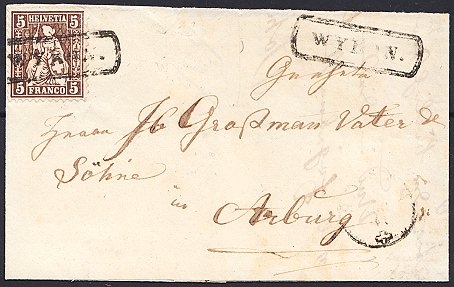 5 HELVETIA 5
5 FRANCO 5
WYKON.
Herrn Jb Großman Vater &
Söhne
in
Arburg